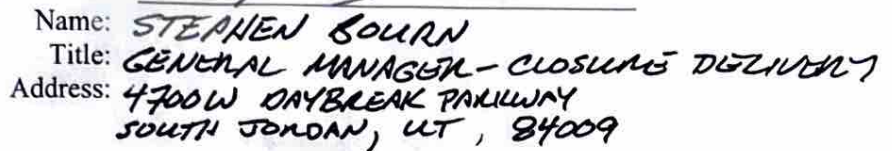 Name: STEPHEN BOURN
Title: GENERAL MANAGER - CLOSURE DELIVERY
Address: 4700 W DAYBREAK PARKWAY
SOUTH JORDAN, UT, 84009